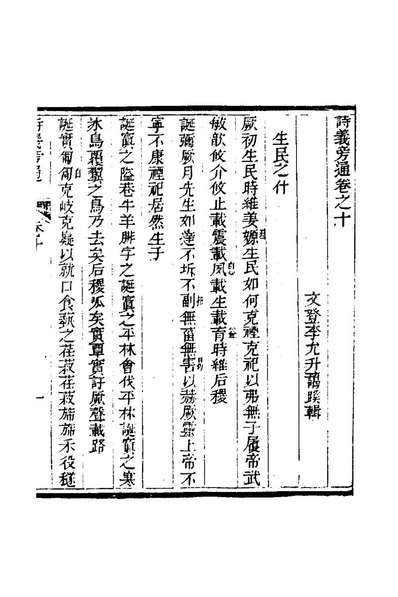 詩義旁通卷之十
文登李允升蹊輯
生民之什
厥初生民時維姜嫄生民如何克禋克祀以弗無子履帝武
敏歆攸介攸止載震載夙載生載育時維后稷
誕彌厥月先生如達不坼不副無菑無害以赫厥靈上帝不
寧不康禋祀居然生子
誕寘之隘巷牛羊腓字之誕寘之平林會伐平林誕寘之寒
冰鳥覆翼之鳥乃去矣后稷呱矣實覃實訏厥聲載路
誕實匍匐克岐克嶷以就口食蓺之荏菽荏菽旆旆禾役穟
詩義旁通
卷十
一